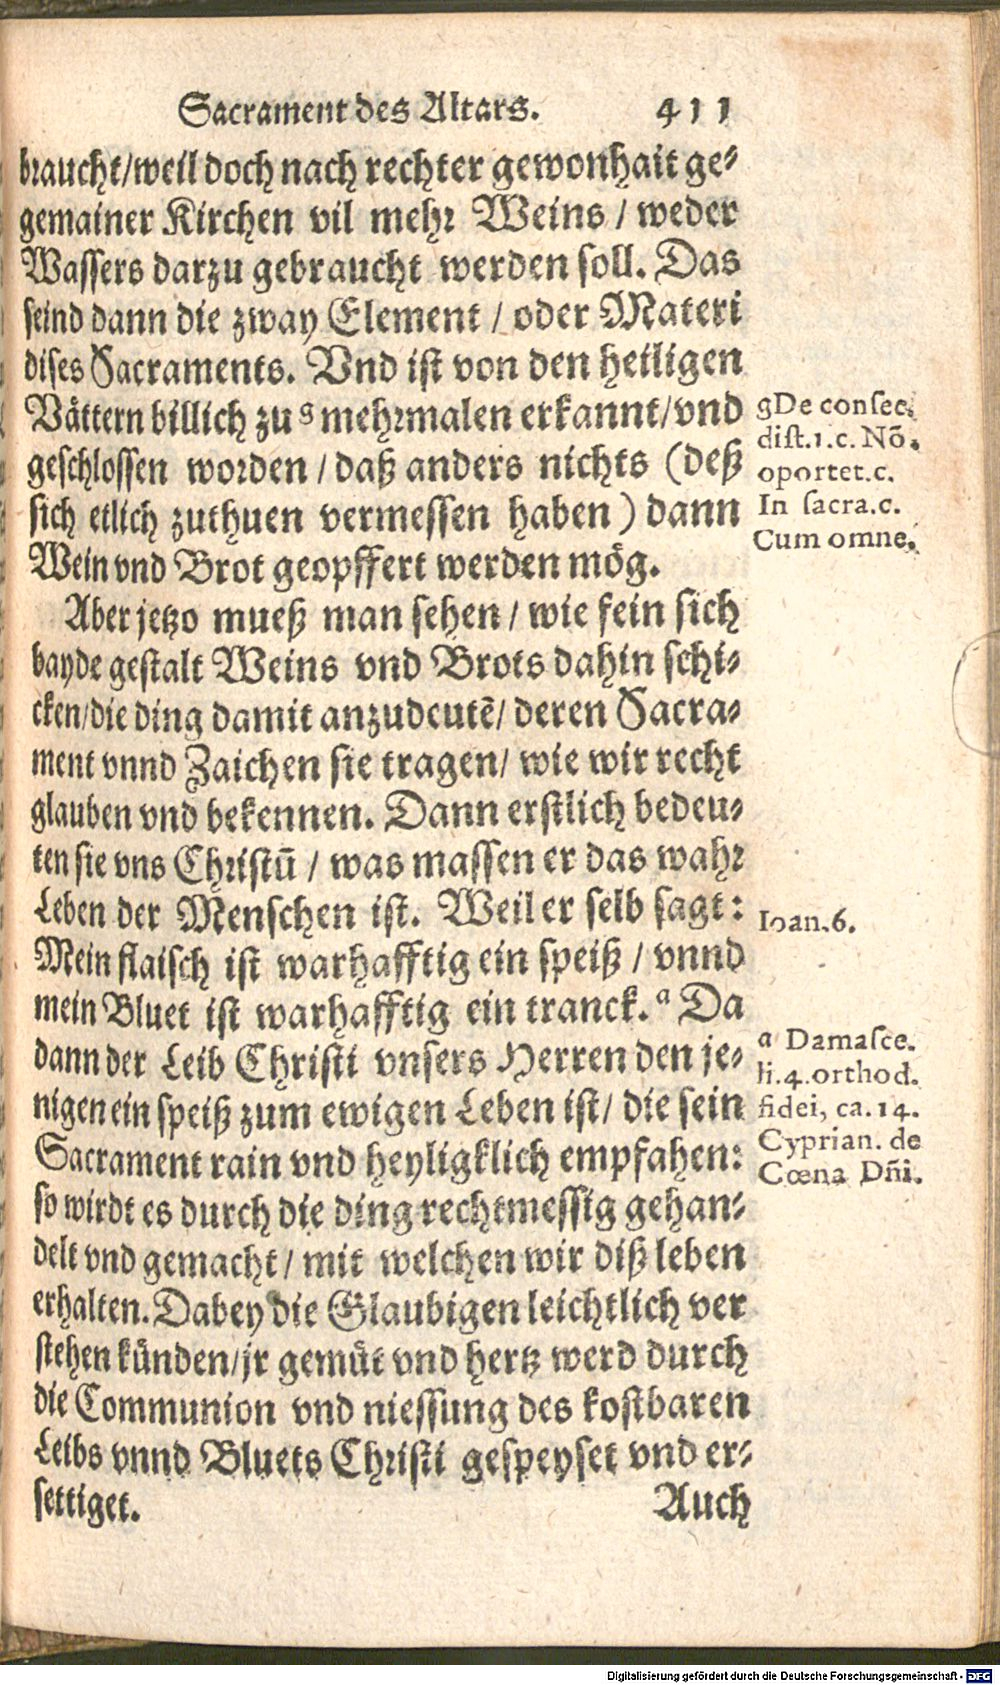 Sacrament des Altars. 411
braucht/weil doch nach rechter gewonhait ge-
gemainer Kirchen vil mehr Weins / weder
Wassers darzu gebraucht werden soll. Das
seind dann die zway Element / oder Materi
dises Sacraments. Vnd ist von den heiligen
Vättern billich zu g mehrmalen erkannt/vnd
geschlossen worden / daß anders nichts (deß
sich etlich zuthuen vermessen haben) dann
Wein vnd Brot geopffert werden mög.
Aber jetzo mueß man sehen / wie fein sich
bayde gestalt Weins vnd Brots dahin schi-
cken/die ding damit anzudeutē/ deren Sacra-
ment vnnd Zaichen sie tragen/ wie wir recht
glauben vnd bekennen. Dann erstlich bedeu-
ten sie vns Christū / was massen er das wahr
Leben der Menschen ist. Weil er selb sagt:
Mein flaisch ist warhafftig ein speiß / vnnd
mein Bluet ist warhafftig ein tranck. a Da
dann der Leib Christi vnsers Herren den je-
nigen ein speiß zum ewigen Leben ist/ die sein
Sacrament rain vnd heyligklich empfahen:
so wirdt es durch die ding rechtmessig gehan-
delt vnd gemacht / mit welchen wir diß leben
erhalten. Dabey die Glaubigen leichtlich ver
stehen künden/jr gemüt vnd hertz werd durch
die Communion vnd niessung des kostbaren
Leibs vnnd Bluets Christi gespeyset vnd er-
settiget.
Auch
gDe consec.
dist.1.c. Nō.
oportet.c.
In sacra.c.
Cum omne.
Ioan.6.
a Damasce.
li.4.orthod.
fidei, ca.14.
Cyprian. de
Cœna Dñi.
Digitalisierung gefördert durch die Deutsche Forschungsgemeinschaft - DFG